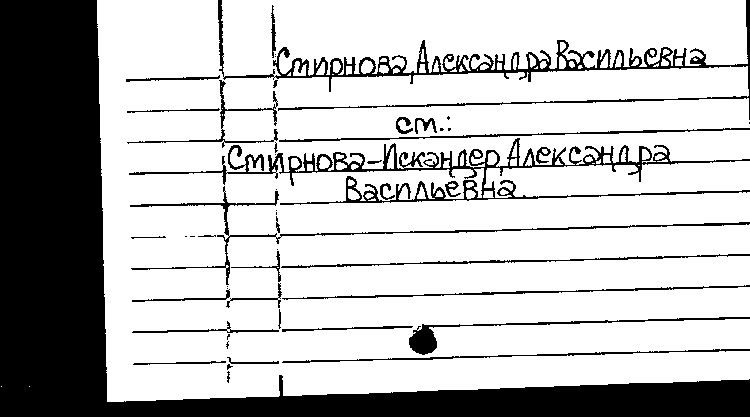 Смирнова, Александра Васильевна
см.:
Смирнова-Искандер, Александра
Васильевна.